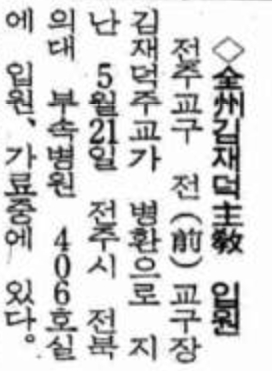 ◇全州김재덕主敎 입원
전주교구 전(前)교구장
김재덕주교가 병환으로 지
난 5월21일 전주시 전북
의대 부속병원 406호실
에 입원、가료중에 있다。